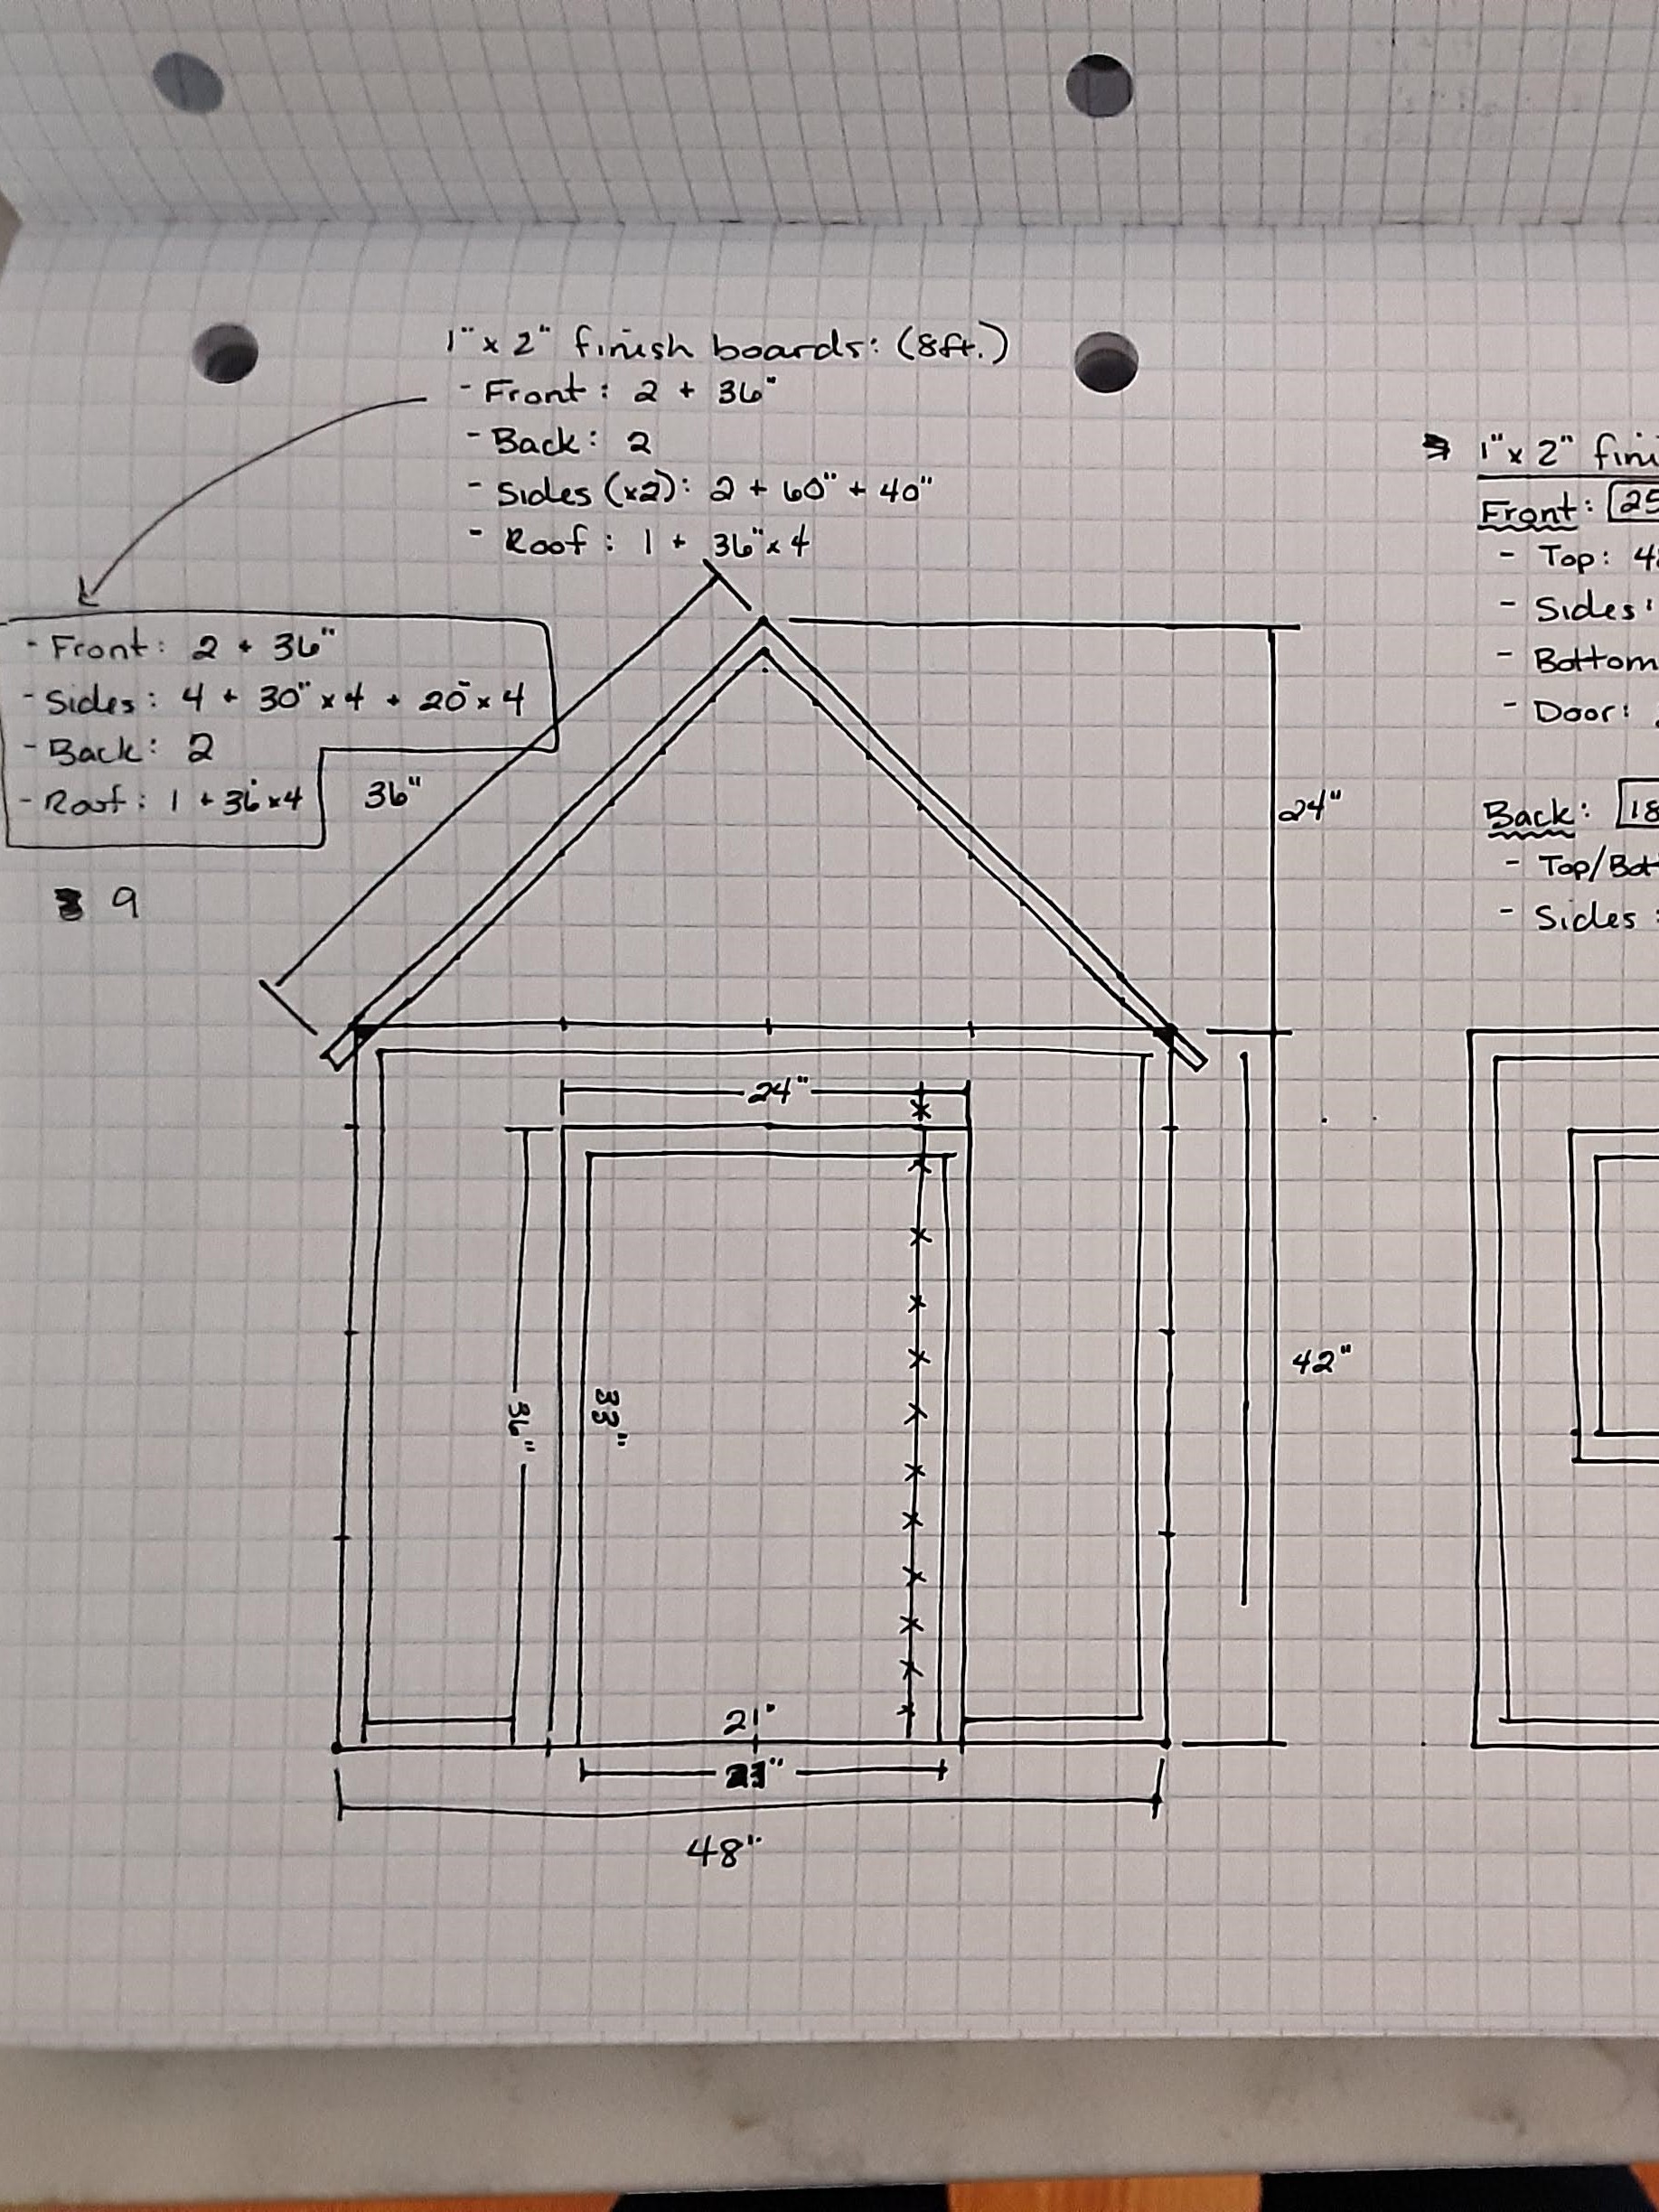 1" x 2" finish boards: (8ft.)
- Front: 2 + 36"
- Back: 2
- Sides (x2): 2 + 60" + 40"
- Roof: 1 + 36" x 4
- Front: 2 + 36"
- Sides: 4 + 30" x 4 + 20" x 4
- Back: 2
- Roof: 1 + 36" x 4
9
36"
24"
24"
42"
36"
33"
21"
48"
1" x 2" fini
Front: 25
- Top: 4
- Sides:
- Bottom
- Door:
Back: 18
- Top/Bot
- Sides: